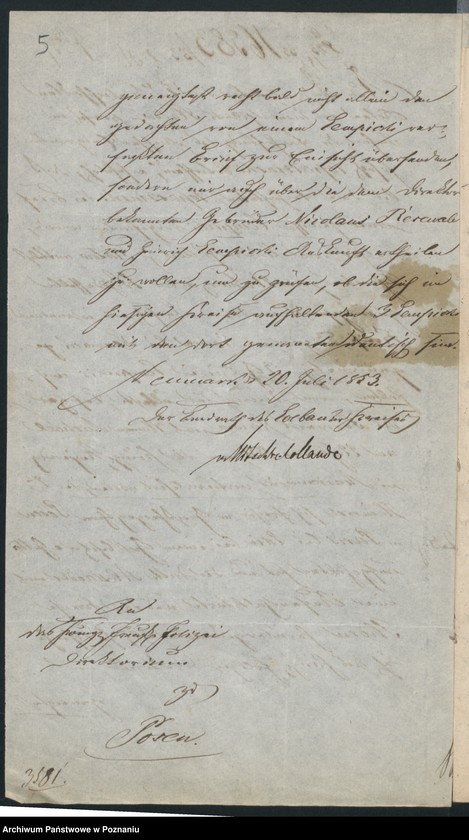 5
geneigtest recht bald nicht allein den
gedachten von einem Sempicki ver-
faßten Brief zur Einsicht übersenden,
sondern mir auch über die dem Direktor
bekannten Gebrüder Nicolaus
und Heinrich Sempicki Auskunft ertheilen
zu wollen, um zu prüfen, ob die sich im
hiesigen Kreise aufhaltenden Sempicki
mit den dort genannten identisch sind.
Neumark d. 20. Juli 1853.
Der Landrath des Loebauer Kreises
An
das Königl. Preuß. Polizei
Direktorium
zu
Posen.
3581.
Archiwum Państwowe w Poznaniu